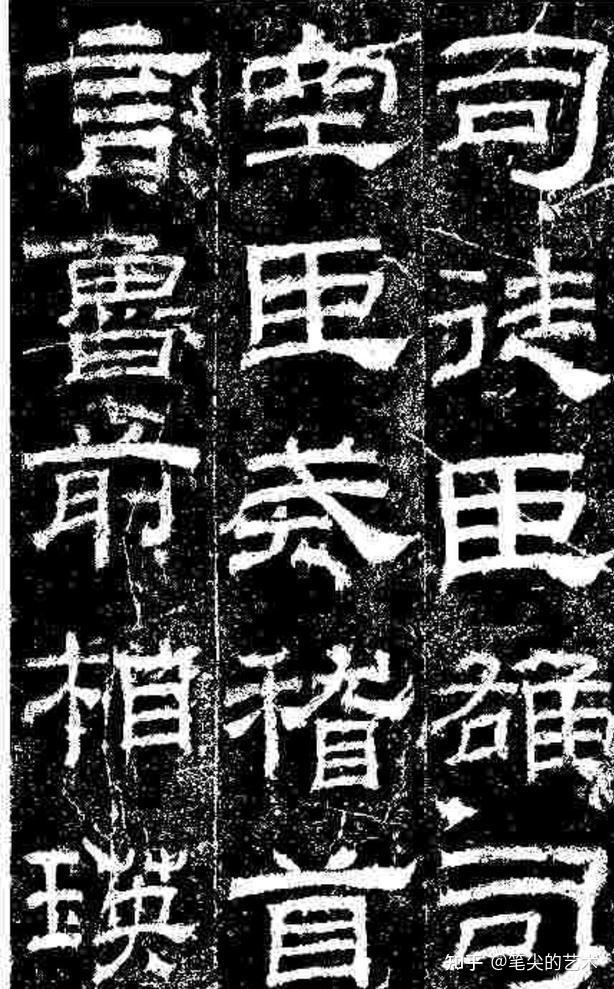 司徒臣雄司
空臣戒稽首
言魯前相瑛
知乎 @笔尖的艺术